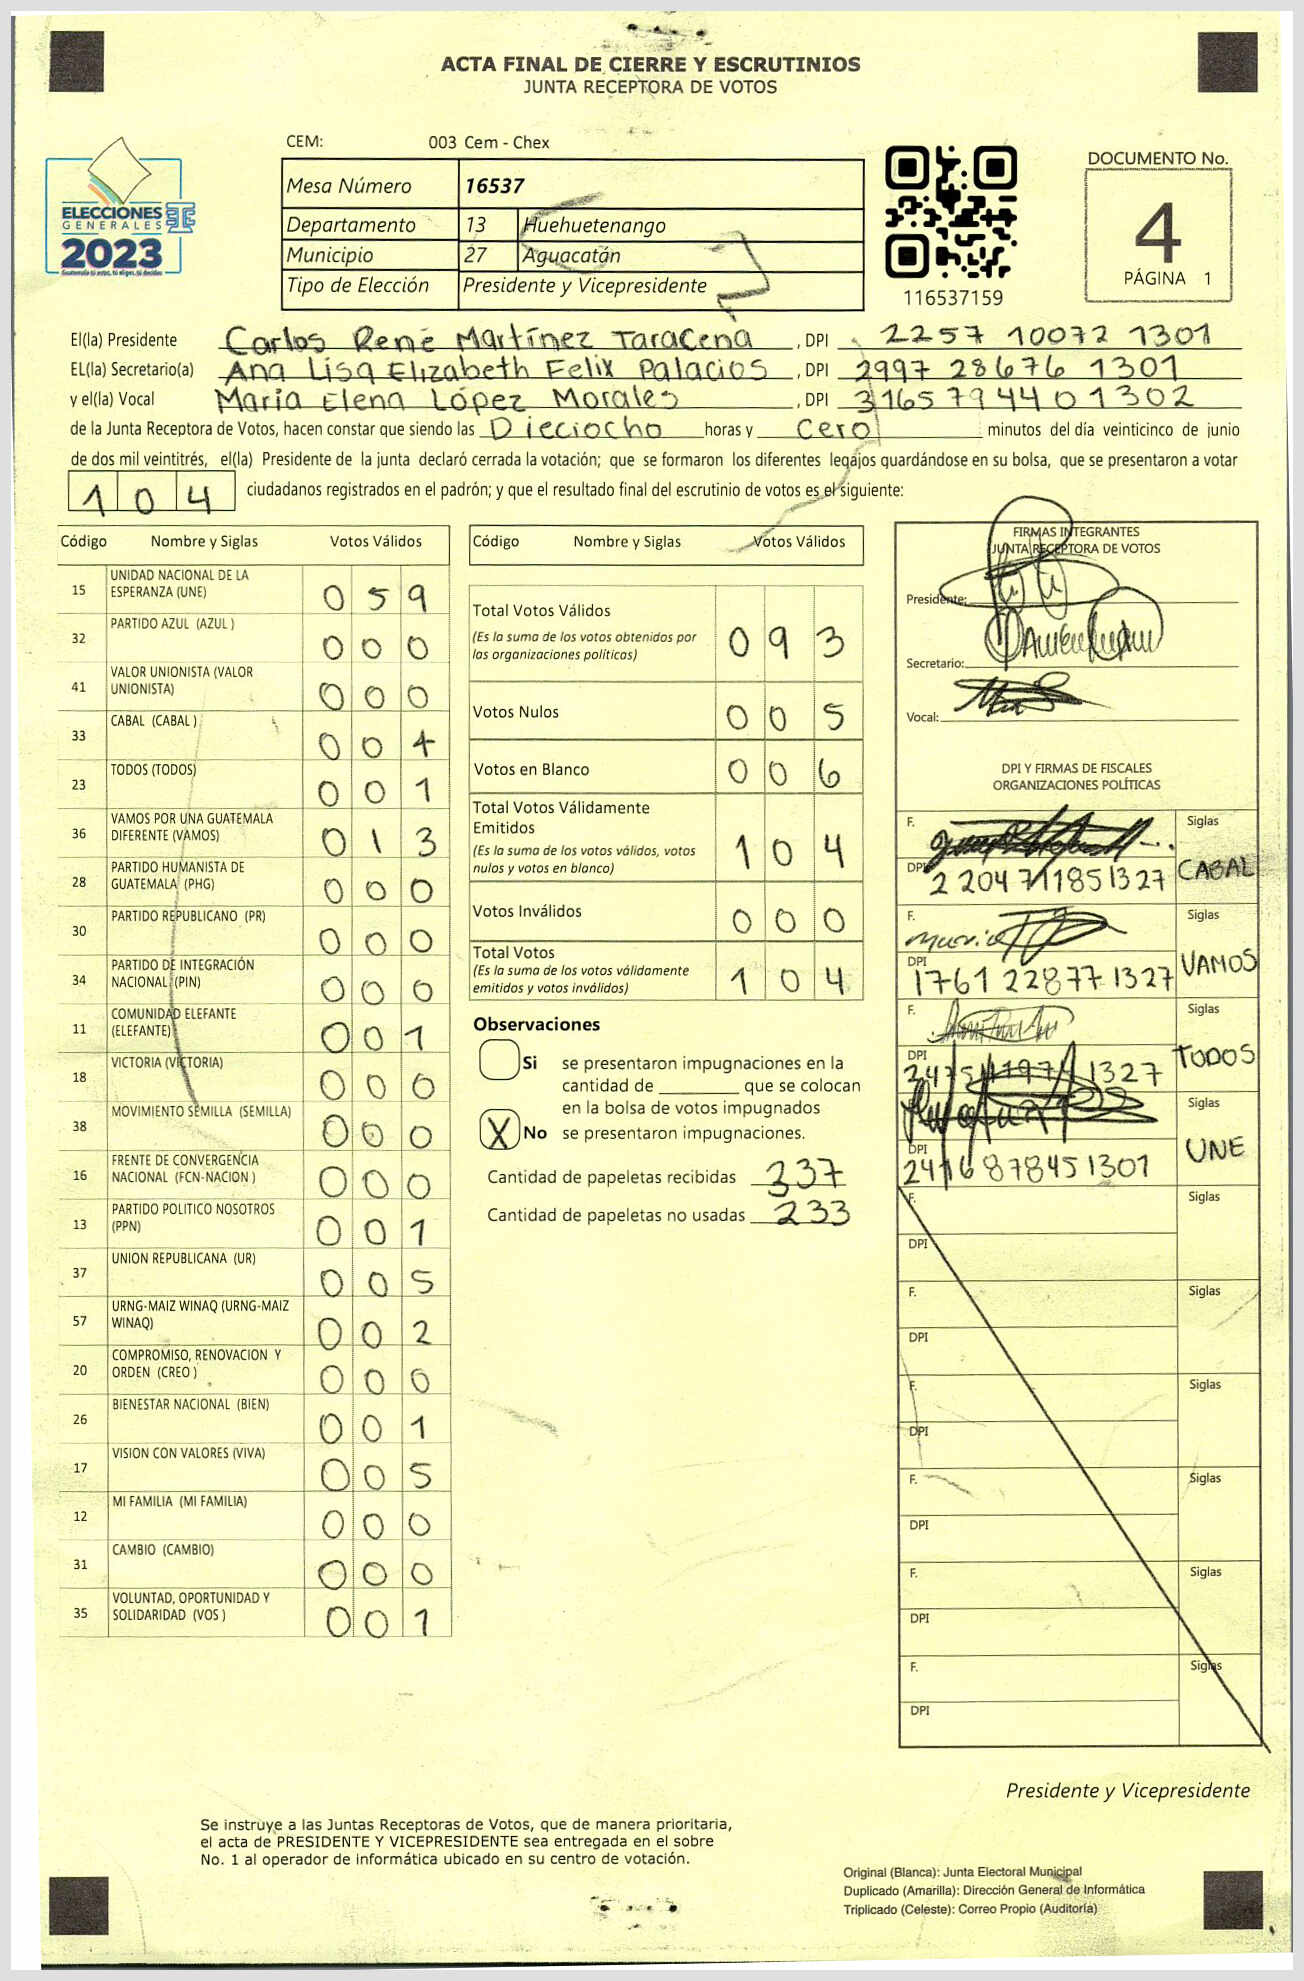 ACTA FINAL DE CIERRE Y ESCRUTINIOS
JUNTA RECEPTORA DE VOTOS
CEM: 003 Cem - Chex
ELECCIONES
GENERALES
2023
Guatemala tú estas, tú eliges, tú decides
Mesa Número 16537
Departamento 13 Huehuetenango
Municipio 27 Aguacatán
Tipo de Elección Presidente y Vicepresidente
116537159
DOCUMENTO No.
4
PÁGINA 1
El(la) Presidente Carlos René Martínez Taracena , DPI 2257 10072 1301
EL(la) Secretario(a) Ana Lisa Elizabeth Felix Palacios , DPI 2997 28676 1301
y el(la) Vocal María Elena López Morales , DPI 3165794401302
de la Junta Receptora de Votos, hacen constar que siendo las Dieciocho horas y Cero minutos del día veinticinco de junio
de dos mil veintitrés, el(la) Presidente de la junta declaró cerrada la votación; que se formaron los diferentes legajos guardándose en su bolsa, que se presentaron a votar
104 ciudadanos registrados en el padrón; y que el resultado final del escrutinio de votos es el siguiente:
Código Nombre y Siglas Votos Válidos
15 UNIDAD NACIONAL DE LA
ESPERANZA (UNE) 059
32 PARTIDO AZUL (AZUL ) 000
41 VALOR UNIONISTA (VALOR
UNIONISTA) 000
33 CABAL (CABAL ) 004
23 TODOS (TODOS) 001
36 VAMOS POR UNA GUATEMALA
DIFERENTE (VAMOS) 013
28 PARTIDO HUMANISTA DE
GUATEMALA (PHG) 000
30 PARTIDO REPUBLICANO (PR) 000
34 PARTIDO DE INTEGRACIÓN
NACIONAL (PIN) 000
11 COMUNIDAD ELEFANTE
(ELEFANTE) 001
18 VICTORIA (VICTORIA) 000
38 MOVIMIENTO SEMILLA (SEMILLA) 000
16 FRENTE DE CONVERGENCIA
NACIONAL (FCN-NACION ) 000
13 PARTIDO POLITICO NOSOTROS
(PPN) 001
37 UNION REPUBLICANA (UR) 005
57 URNG-MAIZ WINAQ (URNG-MAIZ
WINAQ) 002
20 COMPROMISO, RENOVACION Y
ORDEN (CREO ) 000
26 BIENESTAR NACIONAL (BIEN) 001
17 VISION CON VALORES (VIVA) 005
12 MI FAMILIA (MI FAMILIA) 000
31 CAMBIO (CAMBIO) 000
35 VOLUNTAD, OPORTUNIDAD Y
SOLIDARIDAD (VOS ) 001
Código Nombre y Siglas Votos Válidos
Total Votos Válidos 093
(Es la suma de los votos obtenidos por
las organizaciones políticas)
Votos Nulos 005
Votos en Blanco 006
Total Votos Válidamente
Emitidos 104
(Es la suma de los votos válidos, votos
nulos y votos en blanco)
Votos Inválidos 000
Total Votos 104
(Es la suma de los votos válidamente
emitidos y votos inválidos)
Observaciones
Si se presentaron impugnaciones en la
cantidad de ________ que se colocan
en la bolsa de votos impugnados
X No se presentaron impugnaciones.
Cantidad de papeletas recibidas 337
Cantidad de papeletas no usadas 233
FIRMAS INTEGRANTES
JUNTA RECEPTORA DE VOTOS
Presidente:
Secretario:
Vocal:
DPI Y FIRMAS DE FISCALES
ORGANIZACIONES POLÍTICAS
F. Siglas
DPI 2 2047 11851327 CABAL
F. Siglas
DPI 1761 22877 1327 VAMOS
F. Siglas
DPI 1327 TODOS
Siglas
DPI 2416 87845 1301 UNE
F. Siglas
DPI
F. Siglas
DPI
F. Siglas
DPI
F. Siglas
DPI
F. Siglas
DPI
F. Siglas
DPI
Presidente y Vicepresidente
Se instruye a las Juntas Receptoras de Votos, que de manera prioritaria,
el acta de PRESIDENTE Y VICEPRESIDENTE sea entregada en el sobre
No. 1 al operador de informática ubicado en su centro de votación.
Original (Blanca): Junta Electoral Municipal
Duplicado (Amarilla): Dirección General de Informática
Triplicado (Celeste): Correo Propio (Auditoría)